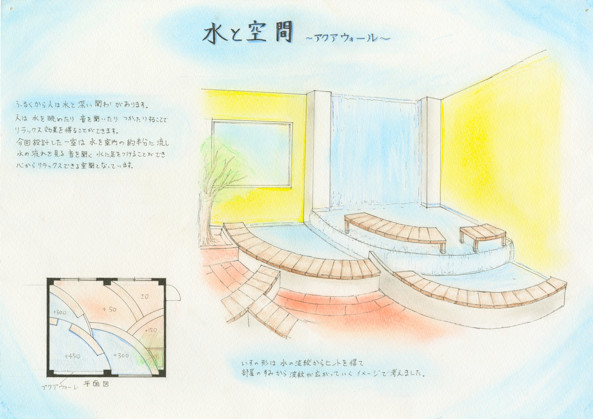 水と空間 ～アクアウォール～
うるくから人は水と深い関わりがあります。
人は水を眺めたり 音を聞いたり つかったりすることで
リラックス効果を得ることができます。
今回設計した一室は 水を室内の約半分に流し
水の流れを見る 音を聞く 水に足をつけることができ
心からリラックスできる空間となっています。
±0
+50
+300
+450
+300
アクアウォール
平面図
いすの形は 水の波紋からヒントを得て
部屋のすみから 波紋が広がっていく イメージで考えました。